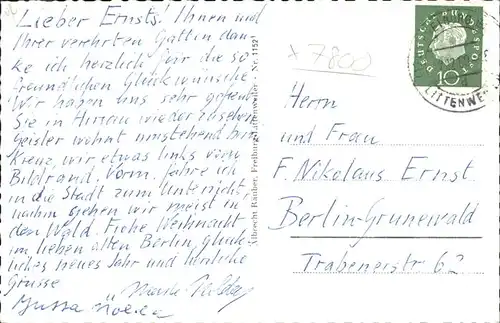 Lieber Ernsts. Ihnen und
Ihrer verehrten Gattin dan-
ke ich herzlich für die so
freundlichen Glückwünsche.
Wir haben uns sehr gefreut
Sie in wiederzusehen.
Geisler wohnt umstehend beim
Kreuz, wir etwas links vom
Bildrand. Vorm. fahre ich
in die Stadt zum Unterricht,
nachm gehen wir meist in
den Wald. Frohe Weihnacht
im lieben alten Berlin, glück-
liches neues Jahr und herzliche
Grüsse
Albrecht Raither, Freiburg Nr. 1152
* 7800
DEUTSCHE BUNDESPOST
10
LITTENWE
Herrn
und Frau
F. Nikolaus Ernst.
Berlin-Grunewald
Trabenerstr 62